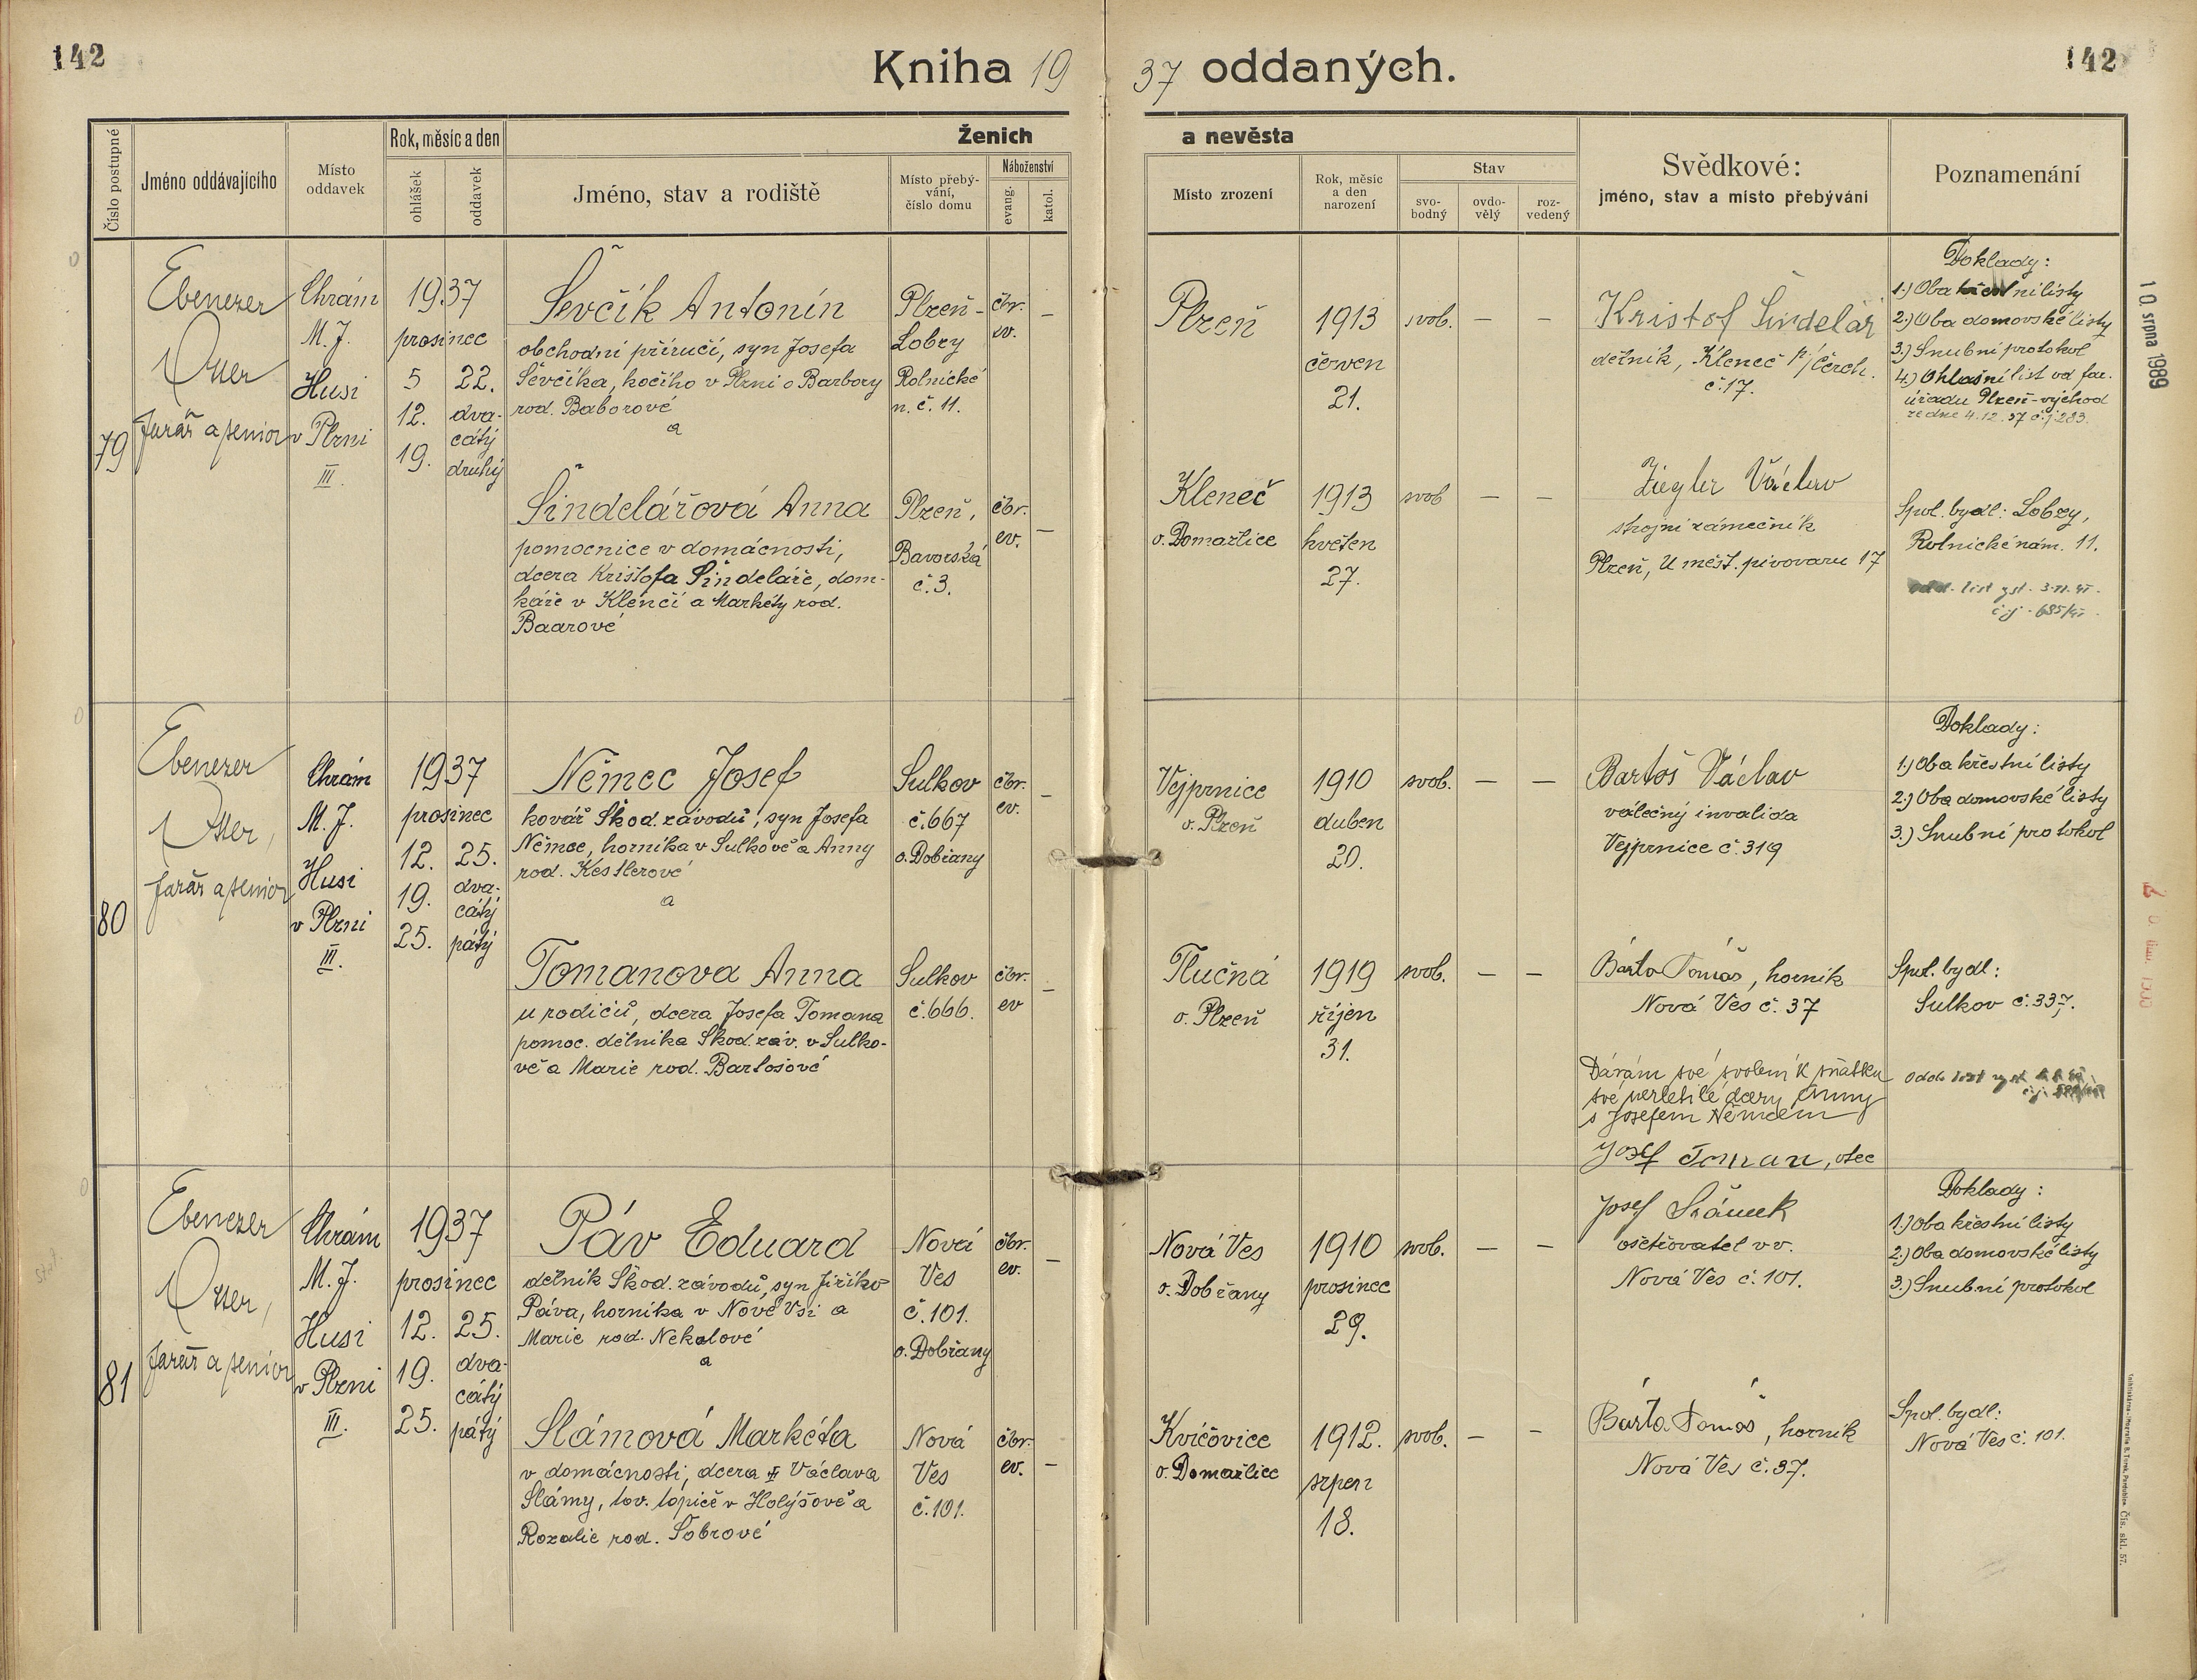 142
Kniha 19 37 oddaných.
142
Číslo postupné
Jméno oddávajícího
Místo oddavek
Rok, měsíc a den
ohlášek
oddavek
Ženich
a nevěsta
Jméno, stav a rodiště
Místo přebý-
vání,
číslo domu
Náboženství
evang.
katol.
Místo zrození
Rok, měsíc
a den
narození
Stav
svo-
bodný
ovdo-
vělý
roz-
vedený
Svědkové:
jméno, stav a místo přebývání
Poznamenání
79
Ebenezer
Otter
farář a senior
Chrám
M. J.
Husi
v Plzni
III.
1937
prosinec
5
12.
19.
22.
dva-
cátý
druhý
Ševčík Antonín
obchodní příručí, syn Josefa
Ševčíka, kočího v Plzni o Barbory
rod. Baborové
a
Plzeň-
Lobzy
Rolnické
n. č. 11.
čbr.
ev.
–
Plzeň
1913
červen
21.
svob.
–
–
Kristof Šindelář
dělník, Kleneč p/Čerch.
č. 17.
Doklady:
1.) Oba křestní listy
2.) Oba domovské listy
3.) Snubní protokol
4.) Ohlašní list od far.
úřadu Plzeň-východ
ze dne 4.12.37 č.j. 283.
Šindelářová Anna
pomocnice v domácnosti,
dcera Krištofa Šindeláře, dom-
káře v Klenčí a Markéty rod.
Baarové
Plzeň,
Bavorská
č. 3.
čbr.
ev.
–
Kleneč
o. Domažlice
1913
květen
27.
svob
–
–
Ziegler Václav
strojní zámečník
Plzeň, U měšt. pivovaru 17
Spol. bydl: Lobzy,
Rolnické nám. 11.
list
č.j.
10. srpna 1989
80
Ebenezer
Otter,
farář a senior
Chrám
M. J.
Husi
v Plzni
III.
1937
prosinec
12.
19.
25.
25.
dva-
cátý
pátý
Němec Josef
kovář Škod. závodů, syn Josefa
Němce, horníka v Sulkově a Anny
rod. Kestlerové
a
Sulkov
č. 667
o. Dobřany
čbr.
ev.
–
Vejprnice
o. Plzeň
1910
duben
20.
svob.
–
–
Bartoš Václav
válečný invalida
Vejprnice č. 319
Doklady:
1.) Oba křestní listy
2.) Oba domovské listy
3.) Snubní protokol
Tomanova Anna
u rodičů, dcera Josefa Tomana
pomoc. dělníka Škod. záv. v Sulko-
vě a Marie rod. Bartošové
Sulkov
č. 666.
čbr.
ev
–
Tlučná
o. Plzeň
1919
říjen
31.
svob.
–
–
Bárta Tomáš, horník
Nová Ves č. 37
Spol. bydl:
Sulkov č. 337.
Dávám své svolení k sňatku
své nezletilé dcery Anny
s Josefem Němcem
Josef Toman, otec
odd. list
81
Ebenezer
Otter,
farář a senior
Chrám
M. J.
Husi
v Plzni
III.
1937
prosinec
12.
19.
25.
25.
dva-
cátý
pátý
Páv Eduard
dělník Škod. závodů, syn Jiříko
Páva, horníka v Nové Vsi a
Marie rod. Nekolové
a
Nová
Ves
č. 101.
o. Dobřany
čbr.
ev.
–
Nová Ves
o. Dobřany
1910
prosinec
29.
svob.
–
–
Josef
ošetřovatel v v.
Nová Ves č. 101.
Doklady:
1.) Oba křestní listy
2.) Oba domovské listy
3.) Snubní protokol
Slámová Markéta
v domácnosti, dcera Václava
Slámy, tov. topiče v Holýšově a
Rozalie rod. Šobrové
Nová
Ves
č. 101.
čbr.
ev.
–
Kvíčovice
o. Domažlice
1912.
srpen
18.
svob.
–
–
Bárta Tomáš, horník
Nová Ves č. 37.
Spol. bydl:
Nová Ves č. 101.
Čís. skl. 57.